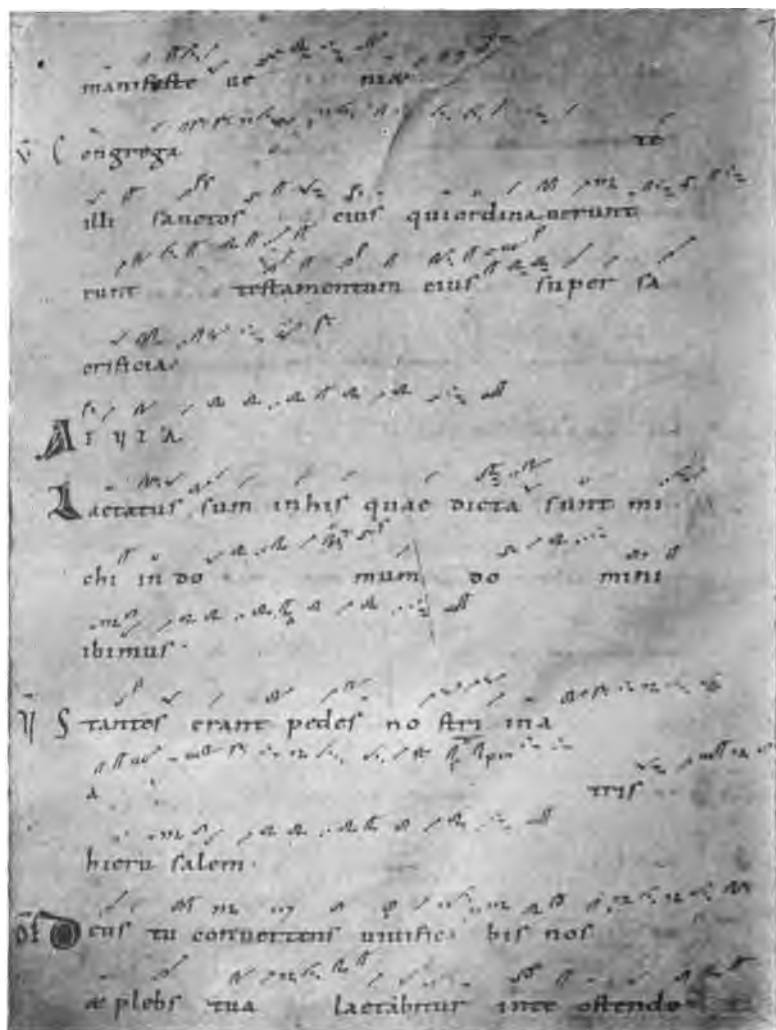 manifeste ue niæ
V̄ Congrega te
illi sanctos eius qui ordinauerunt
runt testamentum eius super sa
crificia
AEVIA
Laetatus sum inhis quae dicta sunt mi
chi indo mum do mini
ibimus
V̄ Stantes erant pedes no stri ina
a triis
hieru salem
of Deus tu conuertens uiuifica bis nos
æ plebs tua laetabitur inte ostende